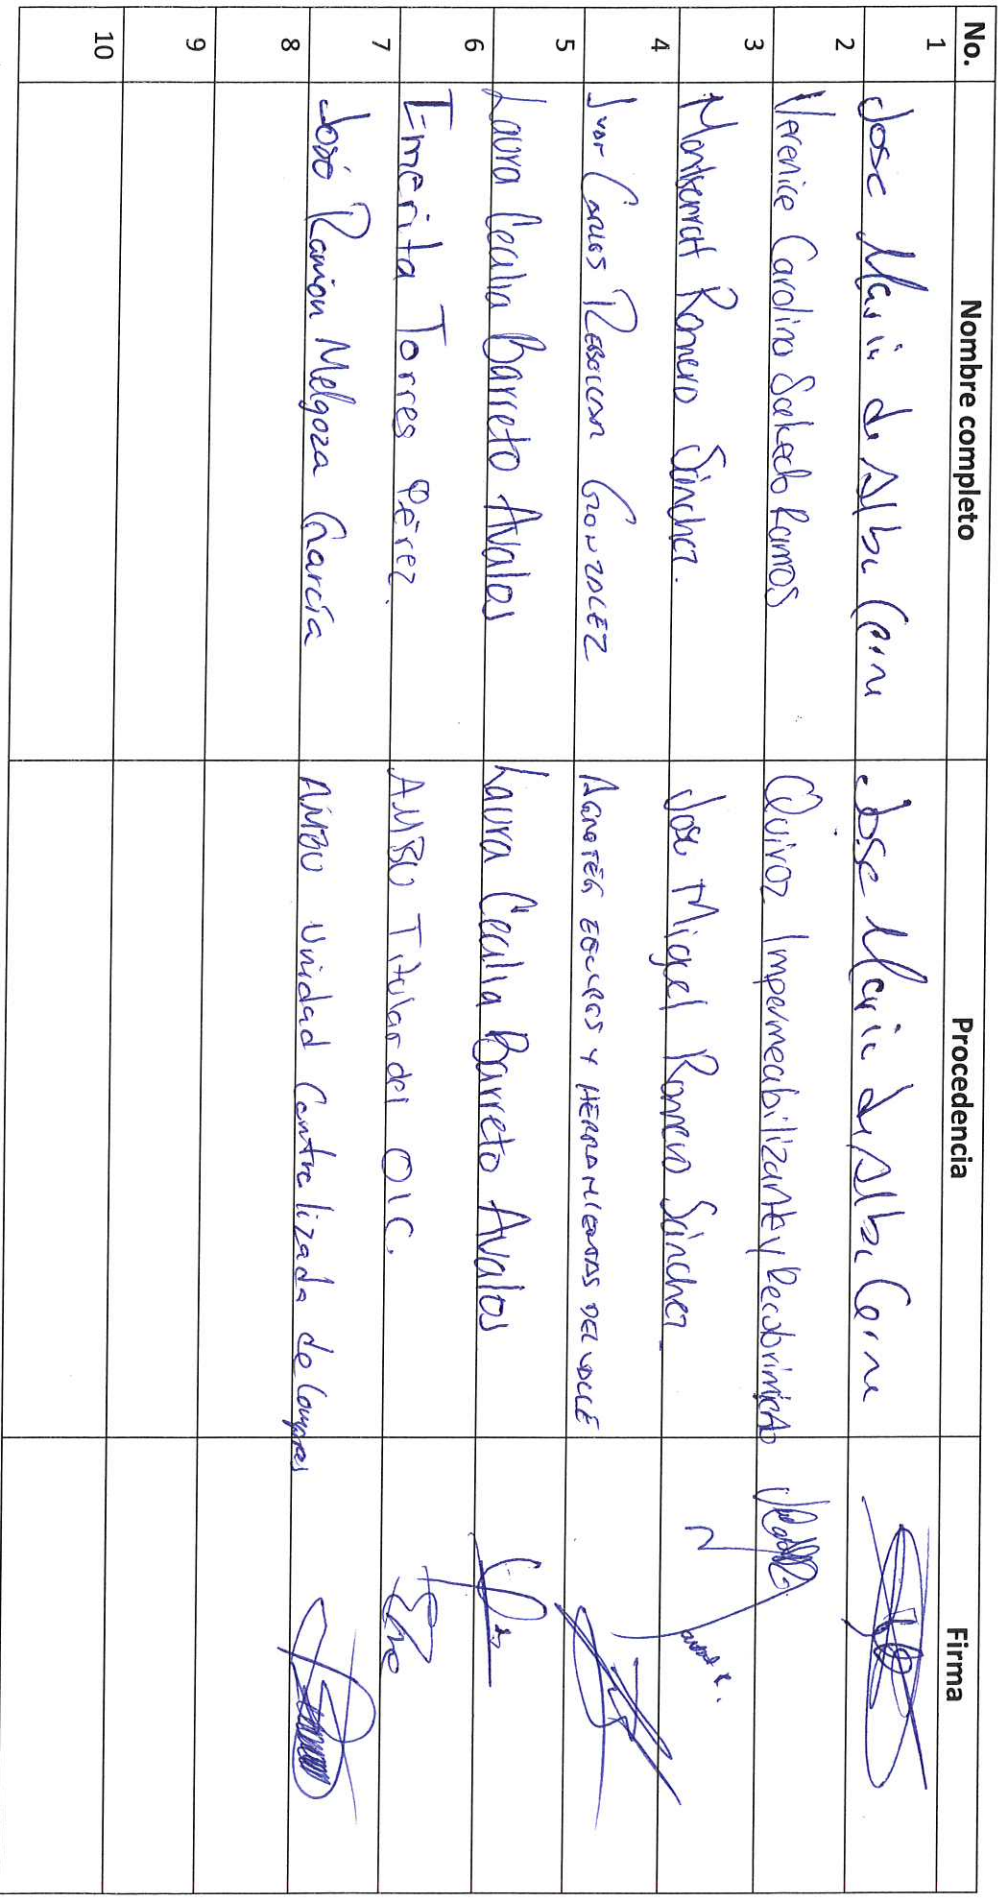 No. Nombre completo Procedencia Firma
1 Jose Maria de Alba Jose Maria de Alba
2 Verenice Carolina Salcedo Ramos Quiroz Impermeabilizante y Recubrimiento
3 Montserrat Romero Sánchez. Jose Miguel Romero Sánchez
4 Juan Carlos González EQUIPOS Y HERRAMIENTAS DEL VALLE
5 Laura Cecilia Barreto Avalos Laura Cecilia Barreto Avalos
6 Emerita Torres Pérez. AMBU Titular del OIC.
7 José Ramón Melgoza García AMBU Unidad Centralizada de Compras
8
9
10